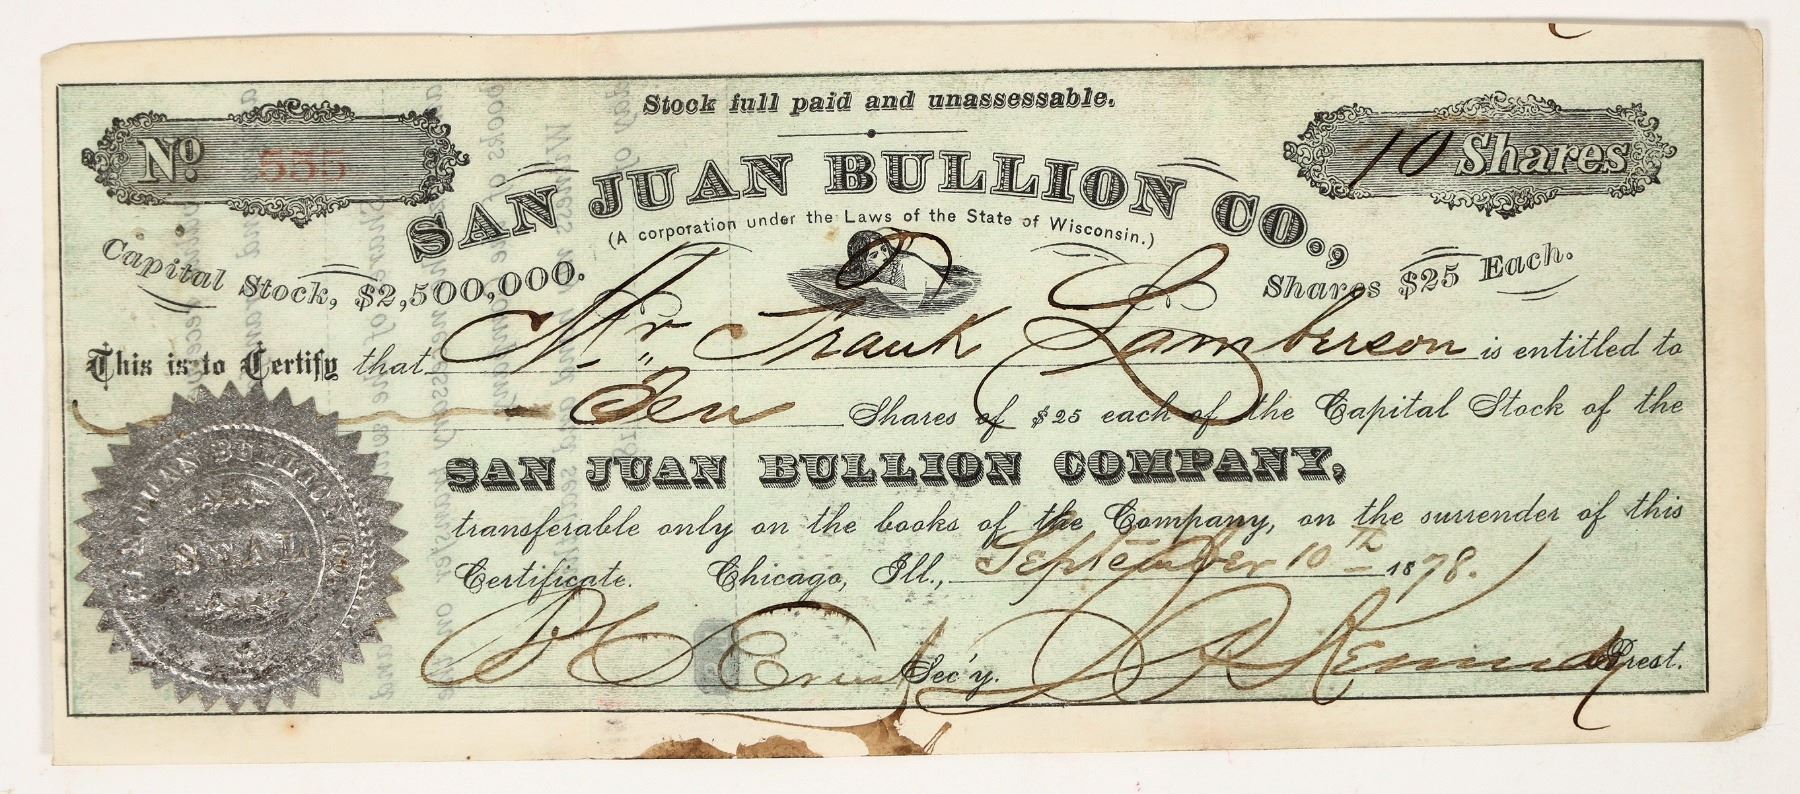 Stock full paid and unassessable.
No. 555
10 Shares
SAN JUAN BULLION CO.,
(A corporation under the Laws of the State of Wisconsin.)
Capital Stock, $2,500,000.
Shares $25 Each.
This is to Certify that Mr. Frank Lamberson is entitled to
Ten Shares of $25 each of the Capital Stock of the
SAN JUAN BULLION COMPANY,
transferable only on the books of the Company, on the surrender of this
Certificate. Chicago, Ill., September 10th 1878.
Sec'y.
Prest.
SAN JUAN BULLION CO.
SEAL